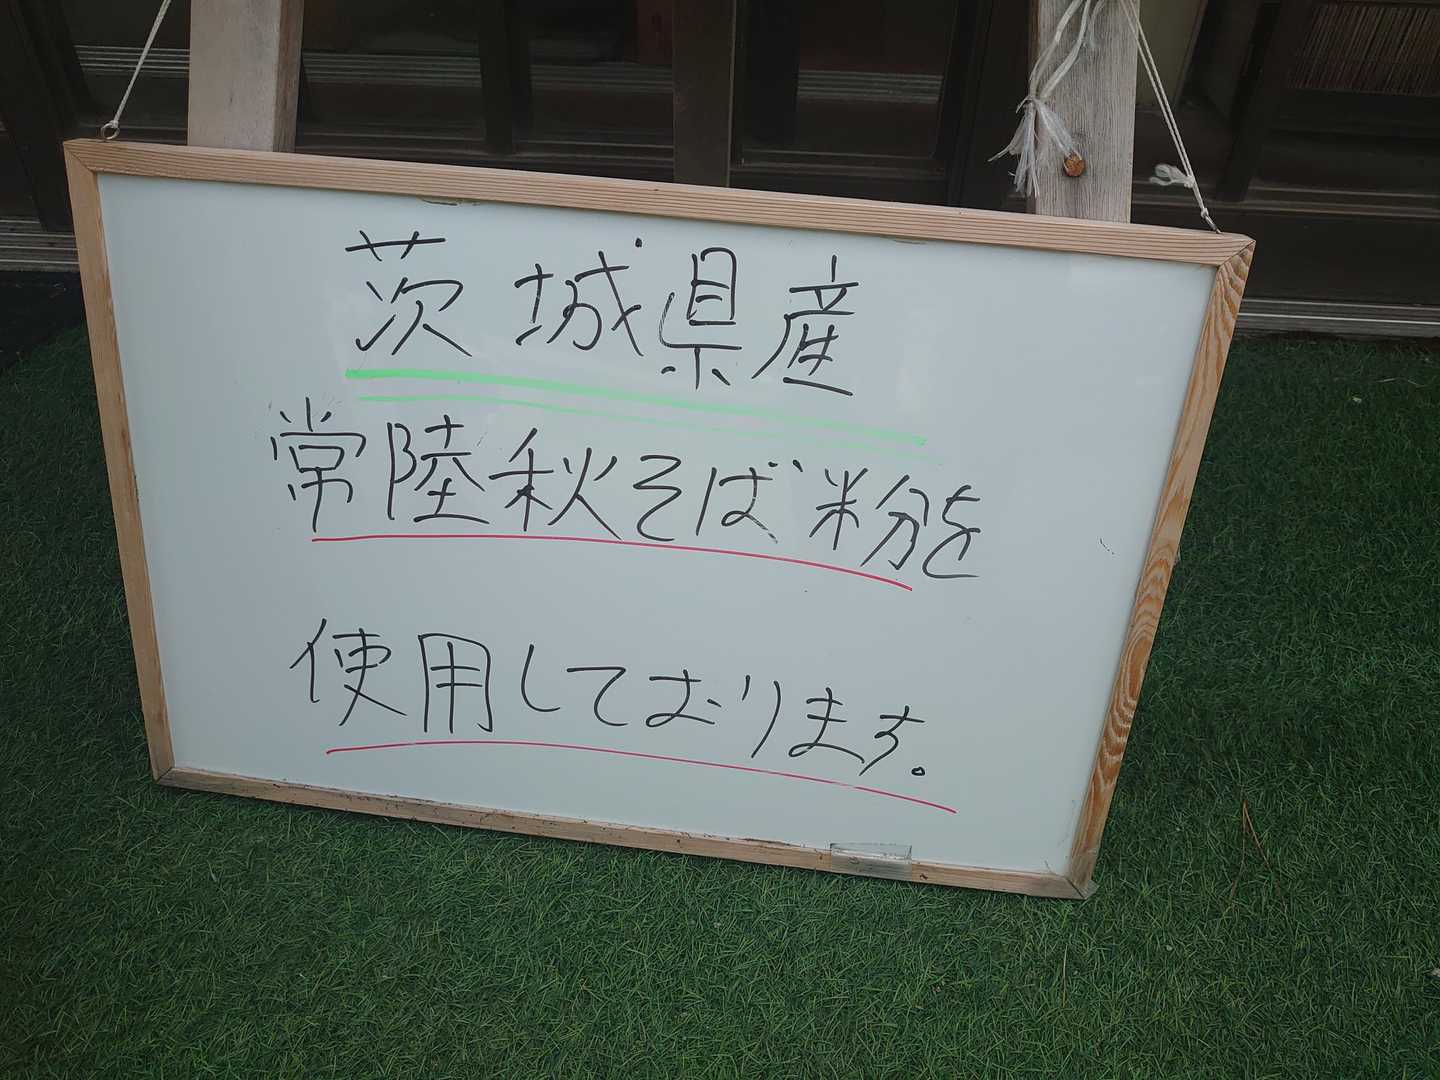 茨城県産
常陸秋そば粉を
使用しております。